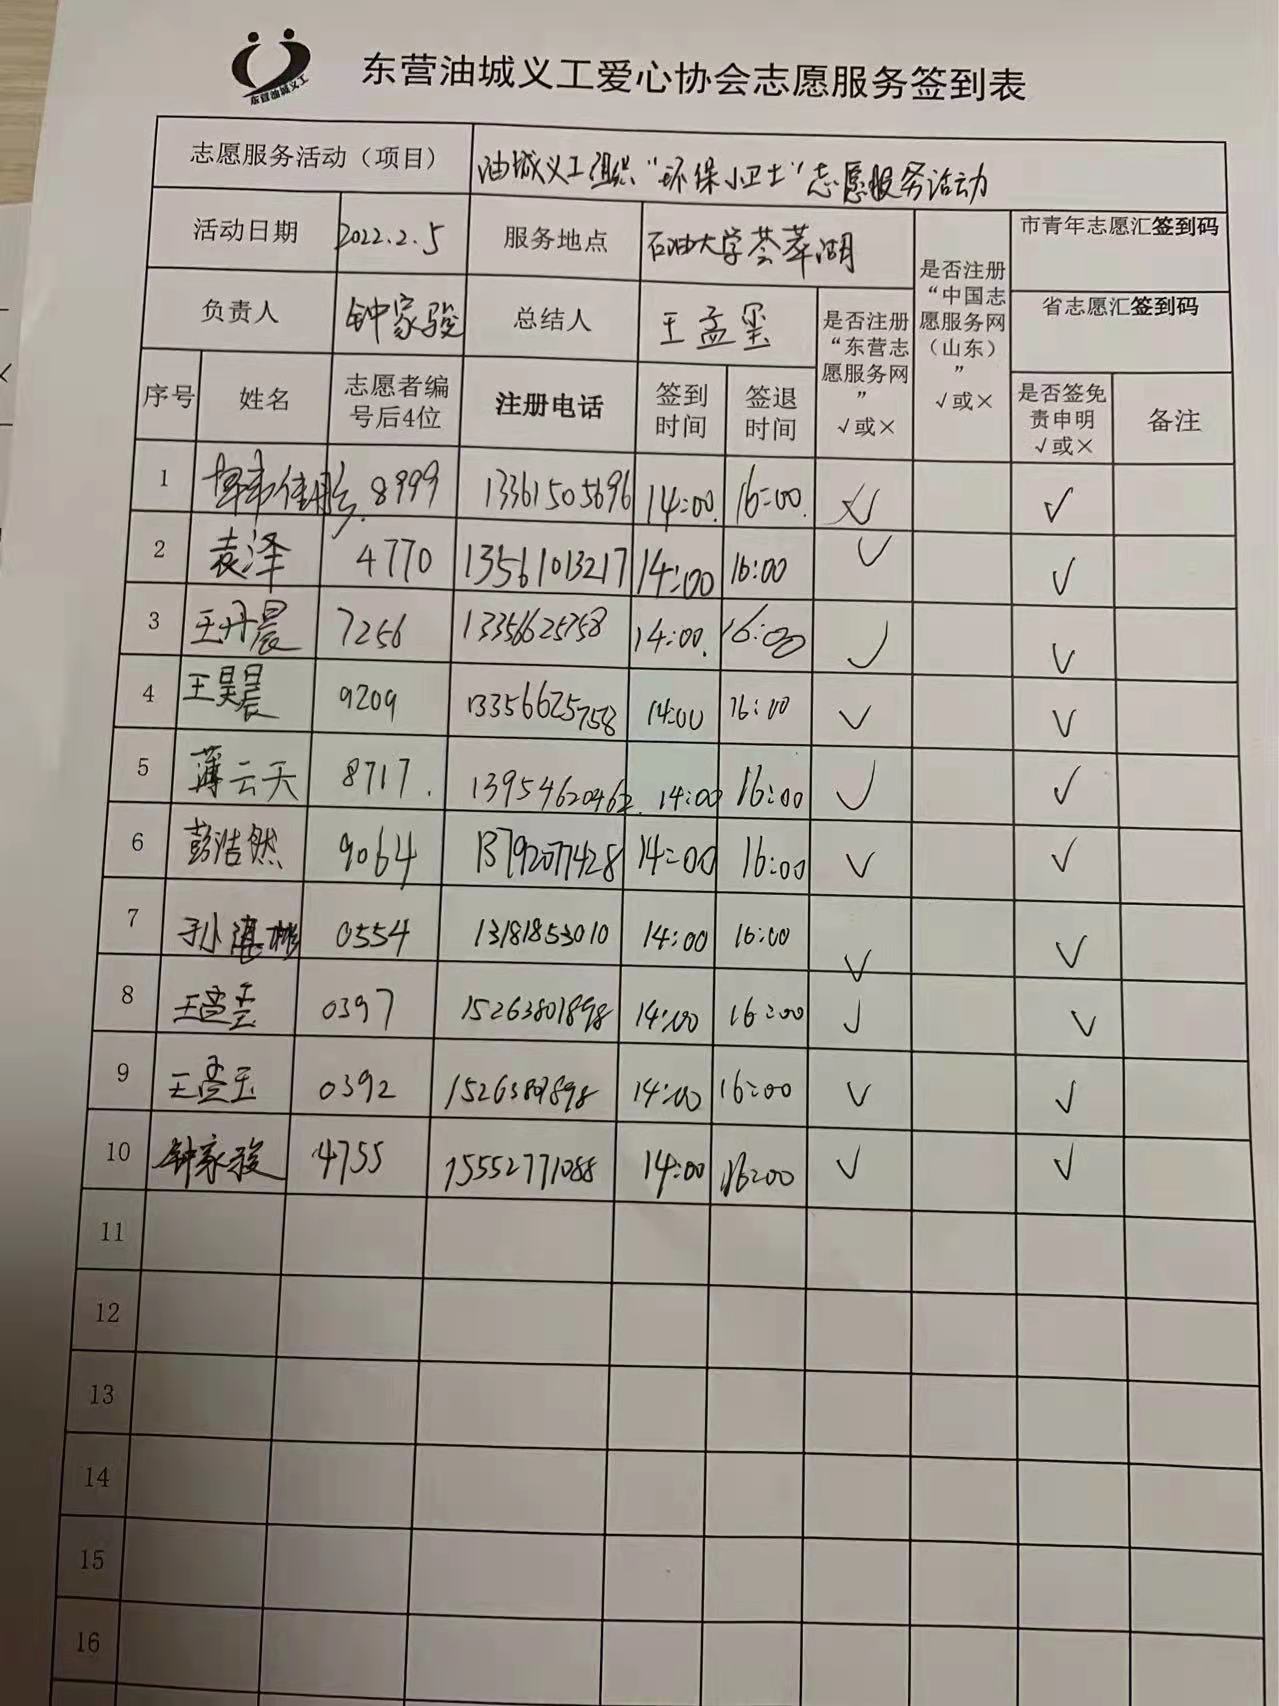 东营油城义工
东营油城义工爱心协会志愿服务签到表
志愿服务活动（项目） 油城义工组织“环保小卫士”志愿服务活动
活动日期 2022.2.5 服务地点 石油大学荟萃湖 是否注册“中国志愿服务网（山东）” √或× 市青年志愿汇签到码
负责人 钟家骏 总结人 王孟玺 是否注册“东营志愿服务网” √或× 省志愿汇签到码
序号 姓名 志愿者编号后4位 注册电话 签到时间 签退时间 是否签免责申明 √或× 备注
1 8999 13361505696 14:00. 16:00. √ √
2 袁泽 4770 13561013217 14:00 16:00 √ √
3 王丹晨 7256 13356625758 14:00. 16:00 √ √
4 王昊晨 9209 13356625758 14:00 16:00 √ √
5 薄云天 8717. 13954620462. 14:00 16:00 √ √
6 彭浩然 9064 13792077428 14:00 16:00 √ √
7 0554 13181853010 14:00 16:00 √ √
8 王孟玺 0397 15263801898 14:00 16:00 √ √
9 王孟玉 0392 15263801898 14:00 16:00 √ √
10 钟家骏 4755 15552771088 14:00 16:00 √ √
11
12
13
14
15
16